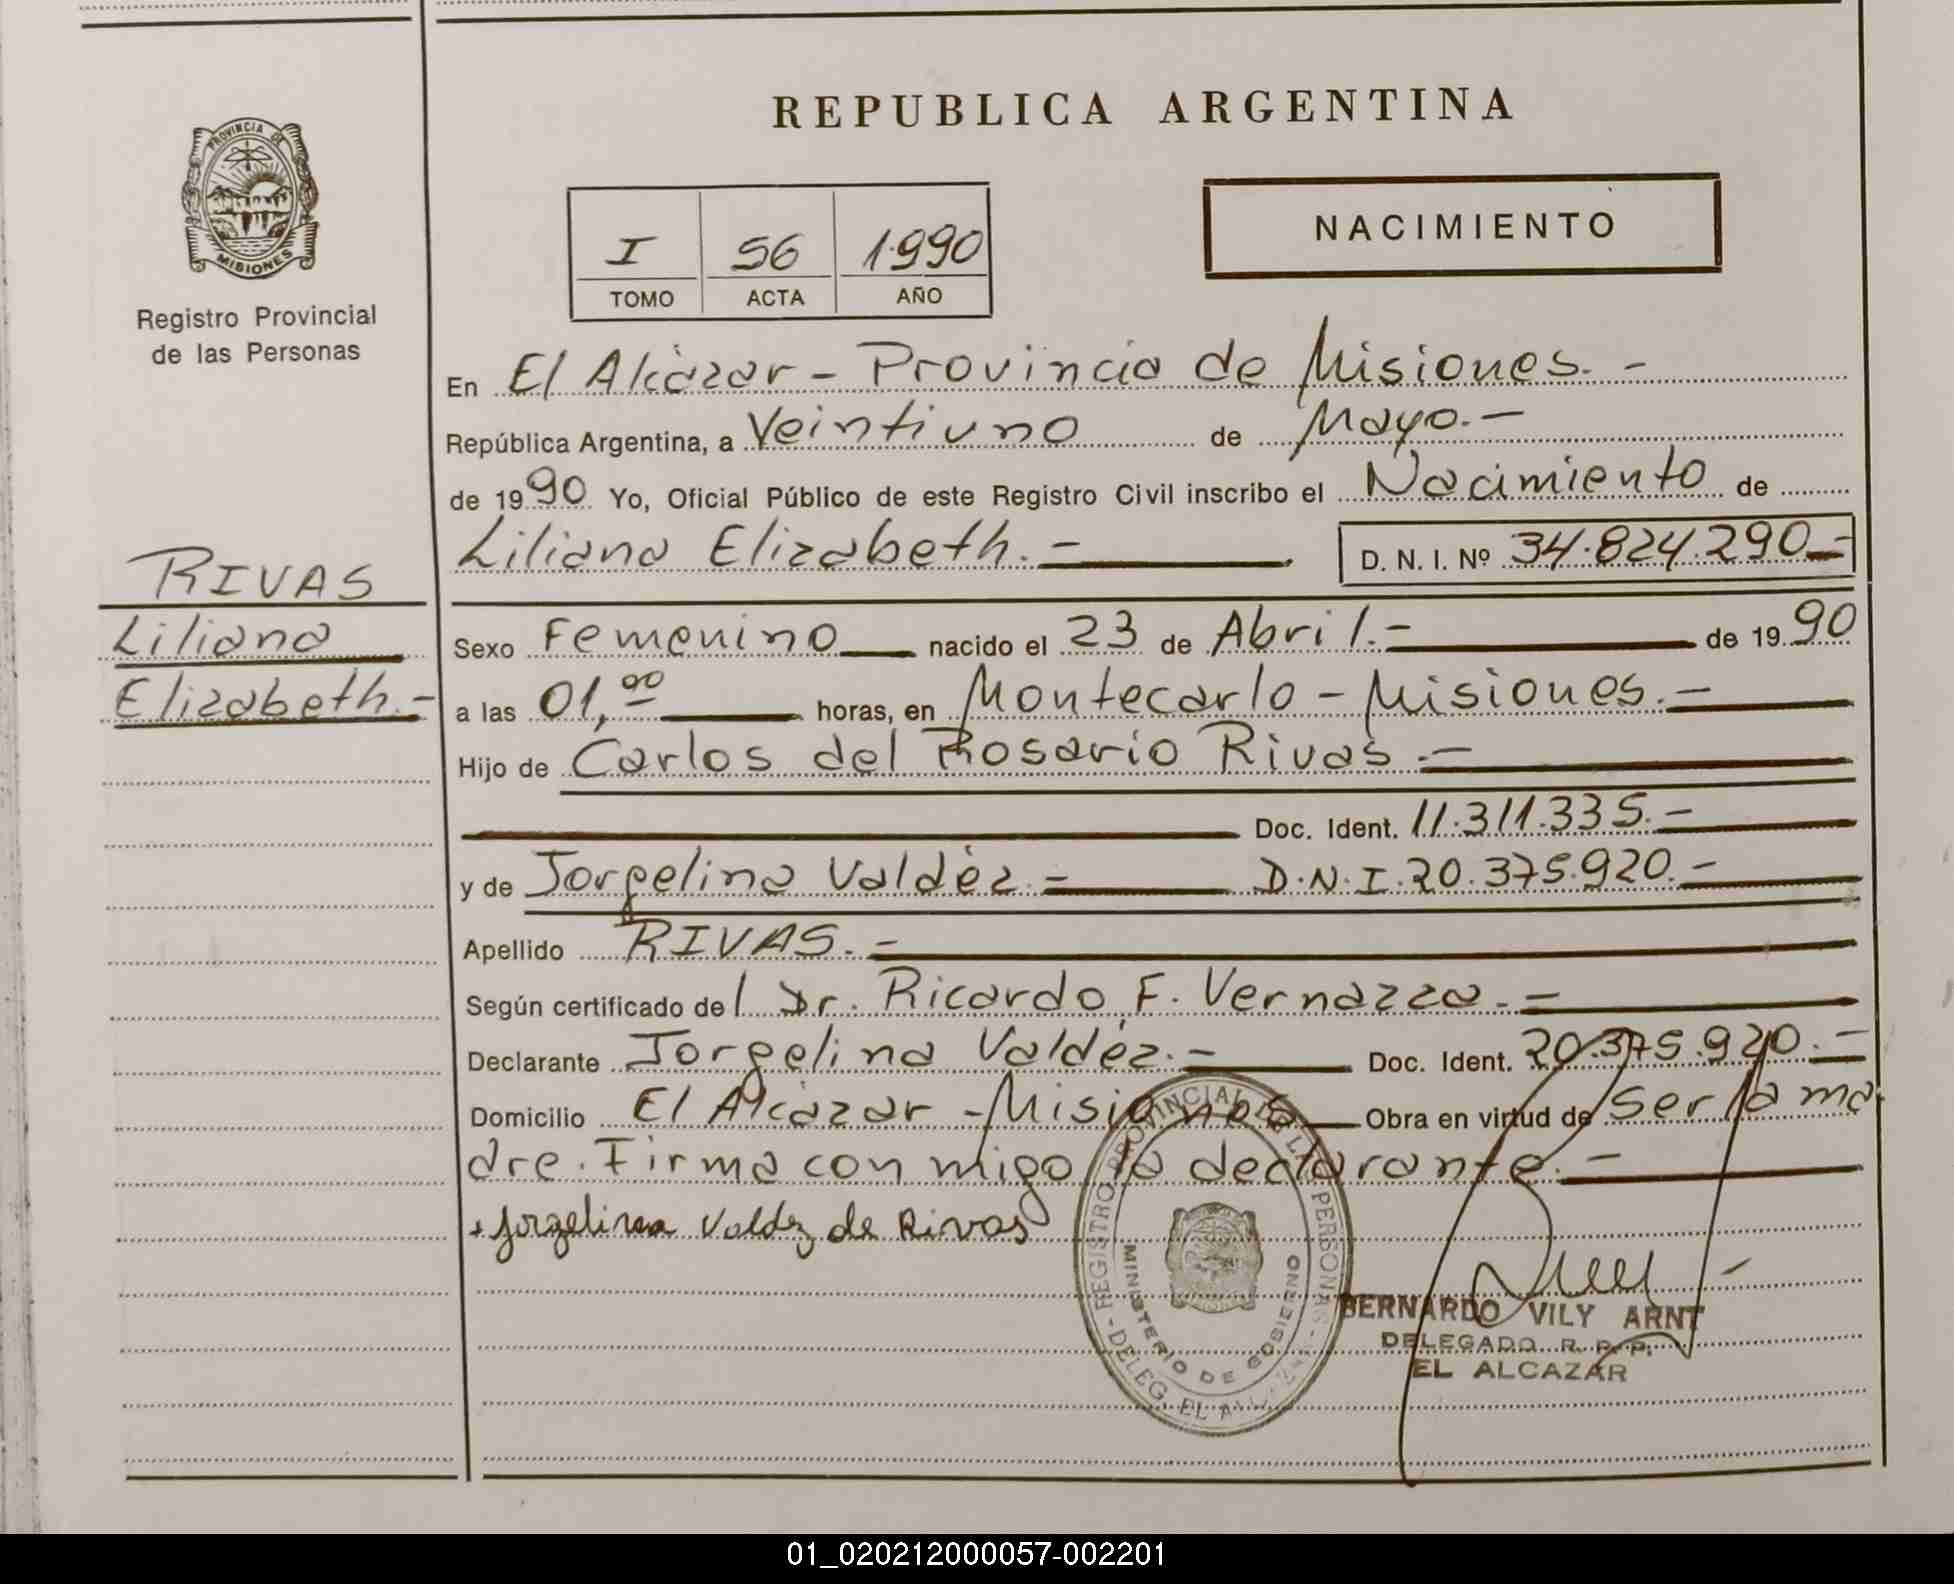 REPUBLICA ARGENTINA
PROVINCIA DE
MISIONES
Registro Provincial
de las Personas
NACIMIENTO
I 56 1.990
TOMO ACTA AÑO
En El Alcázar - Provincia de Misiones. -
República Argentina, a Veintiuno de Mayo. -
de 1990 Yo, Oficial Público de este Registro Civil inscribo el Nacimiento de
Liliana Elizabeth. - D. N. I. Nº 34.824.290 -
RIVAS
Liliana
Elizabeth. -
Sexo Femenino nacido el 23 de Abril. - de 1990
a las 01,00 horas, en Montecarlo - Misiones. -
Hijo de Carlos del Rosario Rivas. -
Doc. Ident. 11.311.335. -
y de Jorgelina Valdéz. - D.N.I. 20.375.920. -
Apellido RIVAS. -
Según certificado del Dr. Ricardo F. Vernazza. -
Declarante Jorgelina Valdéz. - Doc. Ident. 20.375.920. -
Domicilio El Alcázar - Misiones Obra en virtud de Ser la ma
dre. Firma conmigo la declarante. -
+ Jorgelina Valdez de Rivas
REGISTRO PROVINCIAL DE LAS PERSONAS - DELEG. EL ALCAZAR
MINISTERIO DE GOBIERNO
BERNARDO VILY ARNT
DELEGADO R. P. P.
EL ALCAZAR
01_020212000057-002201